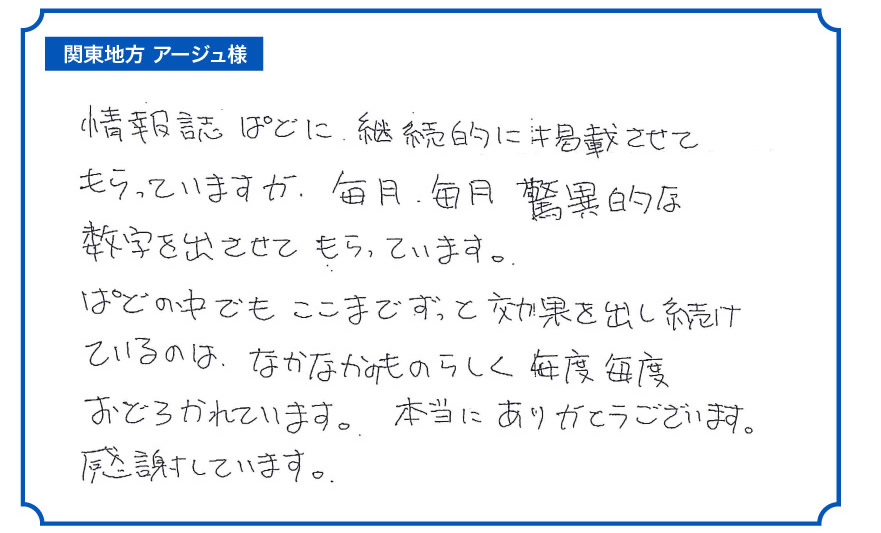 関東地方 アージュ様
情報誌 ぱどに 継続的に掲載させて
もらっていますが、毎月、毎月 驚異的な
数字を出させて もらっています。
ぱどの中でも ここまでずっと効果を出し続け
ているのは、なかなかのものらしく 毎度毎度
おどろかれています。 本当に ありがとうございます。
感謝しています。